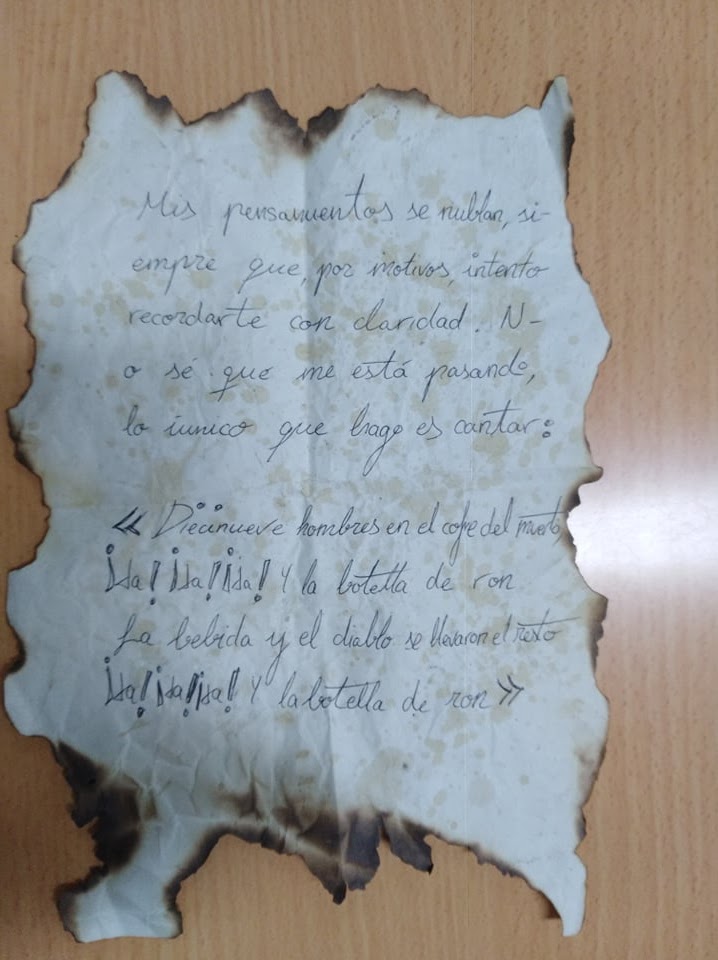 Mis pensamientos se nublan, si-
empre que, por motivos, intento
recordarte con claridad. N-
o sé que me está pasando,
lo iunico que hago es cantar:
« Diecinueve hombres en el cofre del muerto
¡Ja! ¡Ja! ¡Ja! Y la botella de ron
La bebida y el diablo se llevaron el resto
¡Ja! ¡Ja! ¡Ja! Y la botella de ron »